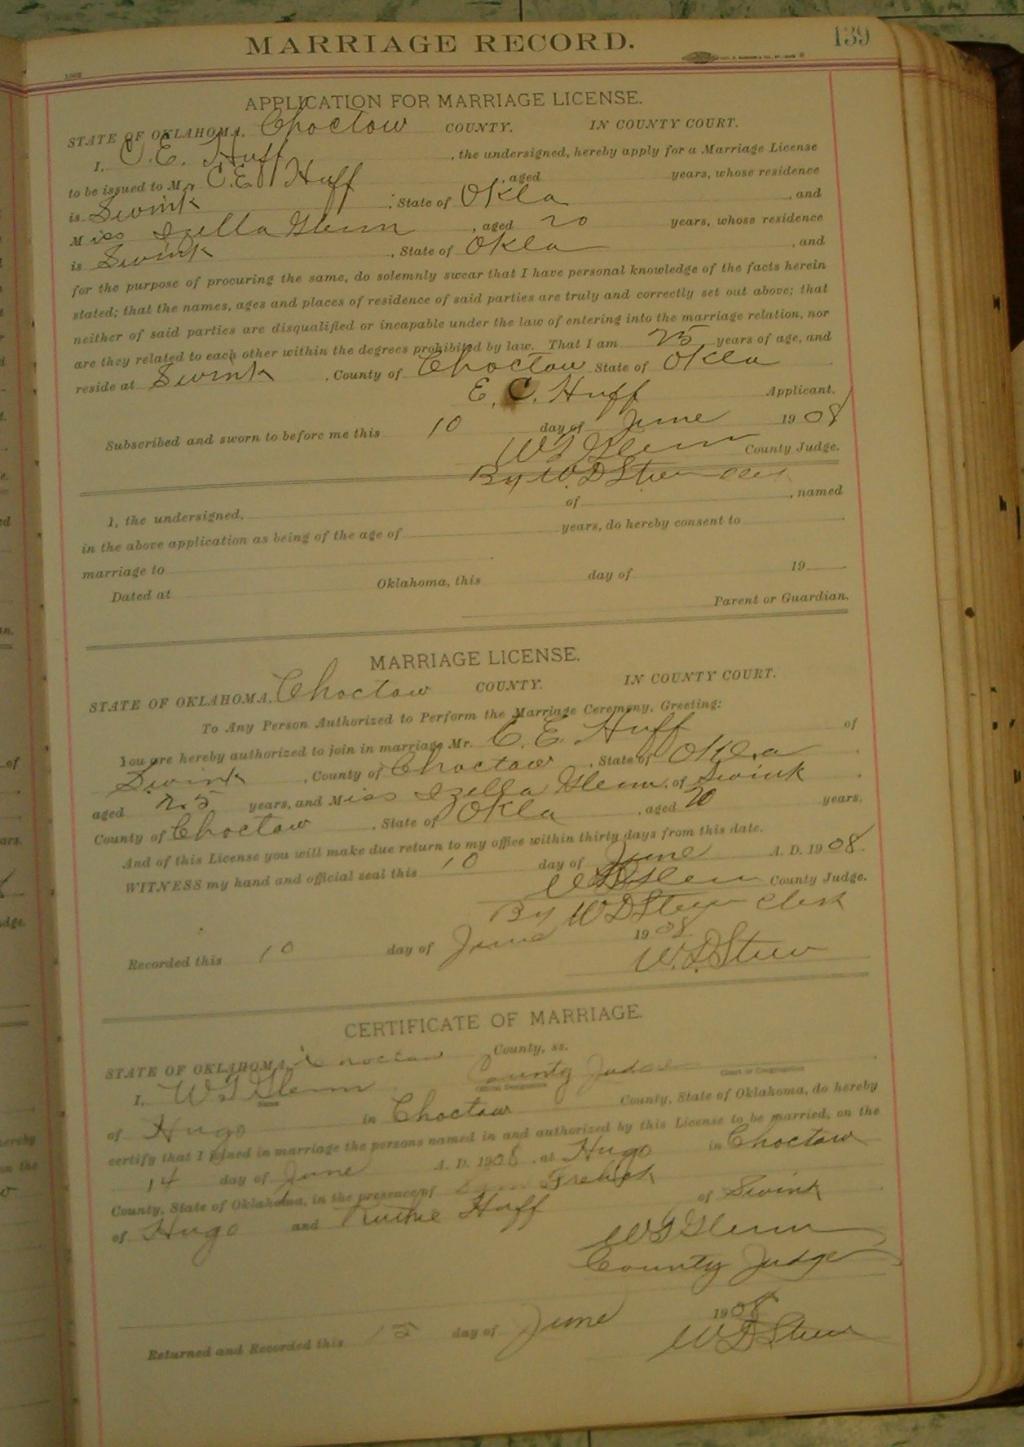 MARRIAGE RECORD. 139
APPLICATION FOR MARRIAGE LICENSE.
STATE OF OKLAHOMA, Choctaw COUNTY. IN COUNTY COURT.
I, C. E. Huff, the undersigned, hereby apply for a Marriage License
to be issued to Mr C.E. Huff, aged years, whose residence
is Swink ; State of Okla, and
Miss Izella Glenn, aged 20 years, whose residence
is Swink, State of Okla, and
for the purpose of procuring the same, do solemnly swear that I have personal knowledge of the facts herein
stated; that the names, ages and places of residence of said parties are truly and correctly set out above; that
neither of said parties are disqualified or incapable under the law of entering into the marriage relation, nor
are they related to each other within the degrees prohibited by law. That I am 25 years of age, and
reside at Swink, County of Choctaw State of Okla
E. C. Huff Applicant.
Subscribed and sworn to before me this 10 day of June 1908
W T Glenn County Judge.
By W D Clerk
I, the undersigned, of , named
in the above application as being of the age of years, do hereby consent to
marriage to
Dated at Oklahoma, this day of 19
Parent or Guardian.
MARRIAGE LICENSE.
STATE OF OKLAHOMA, Choctaw COUNTY. IN COUNTY COURT.
To Any Person Authorized to Perform the Marriage Ceremony, Greeting:
You are hereby authorized to join in marriage Mr. C. E. Huff of
Swink, County of Choctaw, State of Okla
aged 25 years, and Miss Izella Glenn, of Swink
County of Choctaw, State of Okla, aged 20 years.
And of this License you will make due return to my office within thirty days from this date.
WITNESS my hand and official seal this 10 day of June A. D. 1908.
Glenn County Judge.
By W D Clerk
Recorded this 10 day of June 1908
W. D.
CERTIFICATE OF MARRIAGE.
STATE OF OKLAHOMA, Choctaw County, ss.
I, W T Glenn County Judge
Name Official Designation Court or Congregation
of Hugo in Choctaw County, State of Oklahoma, do hereby
certify that I joined in marriage the persons named in and authorized by this License to be married, on the
14 day of June A. D. 1908, at Hugo in Choctaw
County, State of Oklahoma, in the presence of
of Hugo and Huff of Swink
W T Glenn
County Judge
Returned and Recorded this 15 day of June 1908
W D